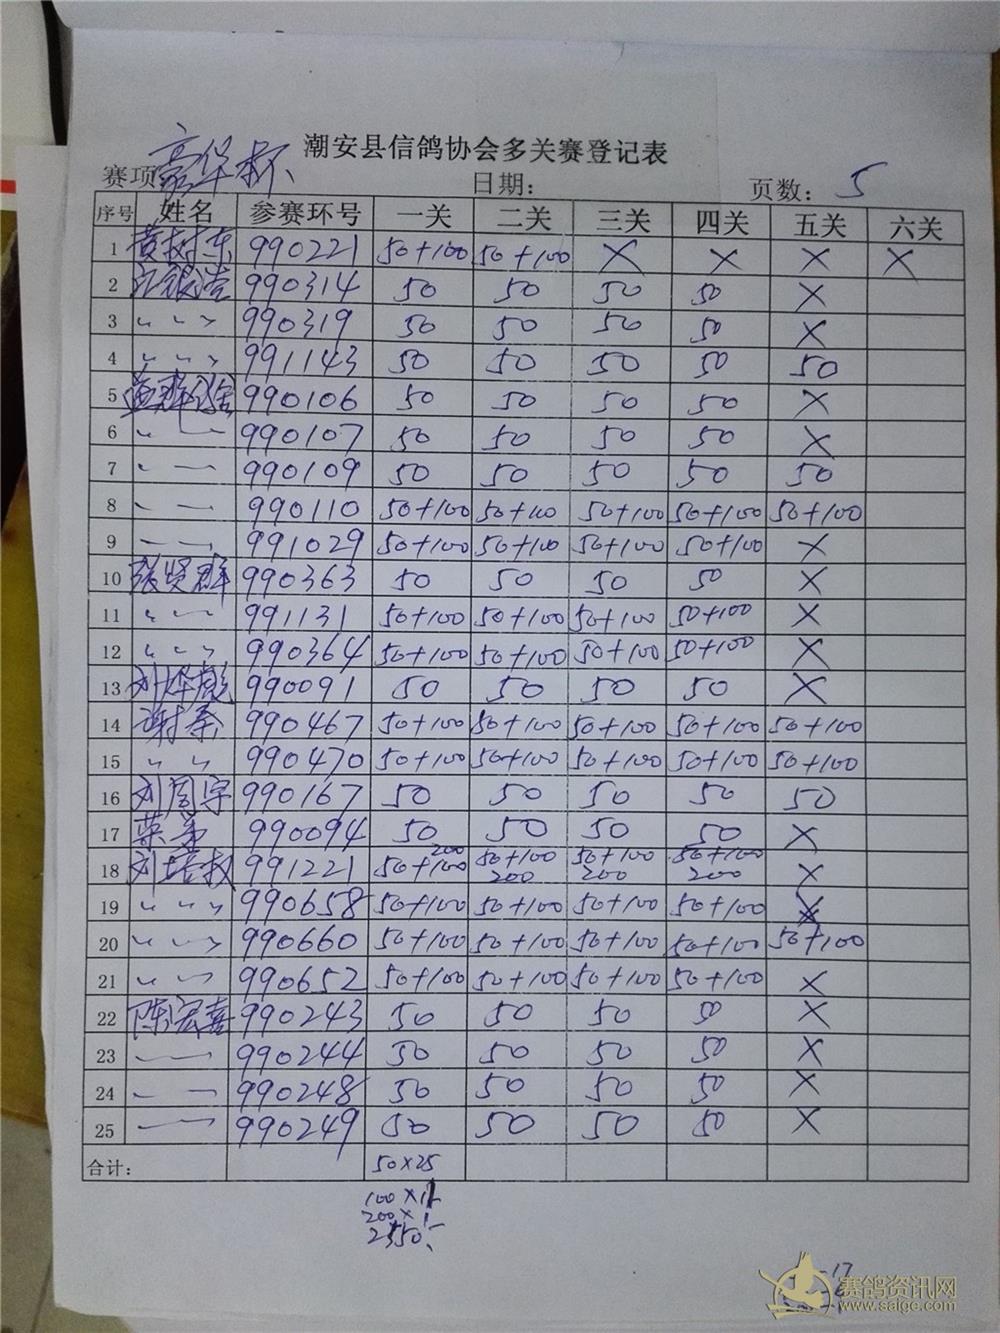 潮安县信鸽协会多关赛登记表
赛项 豪华杯 日期: 页数: 5
序号 姓名 参赛环号 一关 二关 三关 四关 五关 六关
1 黄树东 990221 50+100 50+100 × × × ×
2 990314 50 50 50 50 ×
3 〃 〃 〃 990319 50 50 50 50 ×
4 〃 〃 〃 991143 50 50 50 50 50
5 990106 50 50 50 50 ×
6 〃 — 990107 50 50 50 50 ×
7 〃 — 990109 50 50 50 50 50
8 〃 — 990110 50+100 50+100 50+100 50+100 50+100
9 〃 — 991029 50+100 50+100 50+100 50+100 ×
10 张贤群 990363 50 50 50 50 ×
11 〃 〃 991131 50+100 50+100 50+100 50+100 ×
12 〃 〃 〃 990364 50+100 50+100 50+100 50+100 ×
13 990091 50 50 50 50 ×
14 谢泰 990467 50+100 50+100 50+100 50+100 50+100
15 〃 〃 990470 50+100 50+100 50+100 50+100 50+100
16 990167 50 50 50 50 50
17 990094 50 50 50 50 ×
18 刘培 991221 50+100 200 50+100 200 50+100 200 50+100 200 ×
19 〃 〃 〃 990658 50+100 50+100 50+100 50+100 ×
20 〃 〃 990660 50+100 50+100 50+100 50+100 50+100
21 〃 〃 990652 50+100 50+100 50+100 50+100 ×
22 陈宏喜 990243 50 50 50 50 ×
23 — 990244 50 50 50 50 ×
24 〃 — 990248 50 50 50 50 ×
25 — 990249 50 50 50 50 ×
合计: 50×25
100×11
200×1
17
赛鸽资讯网
www.saige.com